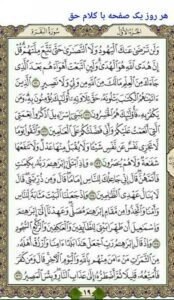 هر روز یک صفحه با کلام حق
الجزء الأول سورة البقرة
وَلَن تَرْضَىٰ عَنكَ الْيَهُودُ وَلَا النَّصَارَىٰ حَتَّىٰ تَتَّبِعَ مِلَّتَهُمْ قُلْ
إِنَّ هُدَى اللَّهِ هُوَ الْهُدَىٰ وَلَئِنِ اتَّبَعْتَ أَهْوَاءَهُم بَعْدَ الَّذِي
جَاءَكَ مِنَ الْعِلْمِ مَا لَكَ مِنَ اللَّهِ مِن وَلِيٍّ وَلَا نَصِيرٍ ١٢٠ الَّذِينَ
آتَيْنَاهُمُ الْكِتَابَ يَتْلُونَهُ حَقَّ تِلَاوَتِهِ أُولَٰئِكَ يُؤْمِنُونَ بِهِ وَمَن
يَكْفُرْ بِهِ فَأُولَٰئِكَ هُمُ الْخَاسِرُونَ ١٢١ يَا بَنِي إِسْرَائِيلَ اذْكُرُوا نِعْمَتِيَ
الَّتِي أَنْعَمْتُ عَلَيْكُمْ وَأَنِّي فَضَّلْتُكُمْ عَلَى الْعَالَمِينَ ١٢٢ وَاتَّقُوا
يَوْمًا لَّا تَجْزِي نَفْسٌ عَن نَّفْسٍ شَيْئًا وَلَا يُقْبَلُ مِنْهَا عَدْلٌ وَلَا تَنفَعُهَا
شَفَاعَةٌ وَلَا هُمْ يُنصَرُونَ ١٢٣ وَإِذِ ابْتَلَىٰ إِبْرَاهِيمَ رَبُّهُ بِكَلِمَاتٍ
فَأَتَمَّهُنَّ قَالَ إِنِّي جَاعِلُكَ لِلنَّاسِ إِمَامًا قَالَ وَمِن ذُرِّيَّتِي قَالَ
لَا يَنَالُ عَهْدِي الظَّالِمِينَ ١٢٤ وَإِذْ جَعَلْنَا الْبَيْتَ مَثَابَةً لِّلنَّاسِ
وَأَمْنًا وَاتَّخِذُوا مِن مَّقَامِ إِبْرَاهِيمَ مُصَلًّى وَعَهِدْنَا إِلَىٰ إِبْرَاهِيمَ
وَإِسْمَاعِيلَ أَن طَهِّرَا بَيْتِيَ لِلطَّائِفِينَ وَالْعَاكِفِينَ وَالرُّكَّعِ
السُّجُودِ ١٢٥ وَإِذْ قَالَ إِبْرَاهِيمُ رَبِّ اجْعَلْ هَٰذَا بَلَدًا آمِنًا وَارْزُقْ أَهْلَهُ
مِنَ الثَّمَرَاتِ مَنْ آمَنَ مِنْهُم بِاللَّهِ وَالْيَوْمِ الْآخِرِ قَالَ وَمَن كَفَرَ
فَأُمَتِّعُهُ قَلِيلًا ثُمَّ أَضْطَرُّهُ إِلَىٰ عَذَابِ النَّارِ وَبِئْسَ الْمَصِيرُ ١٢٦
١٩